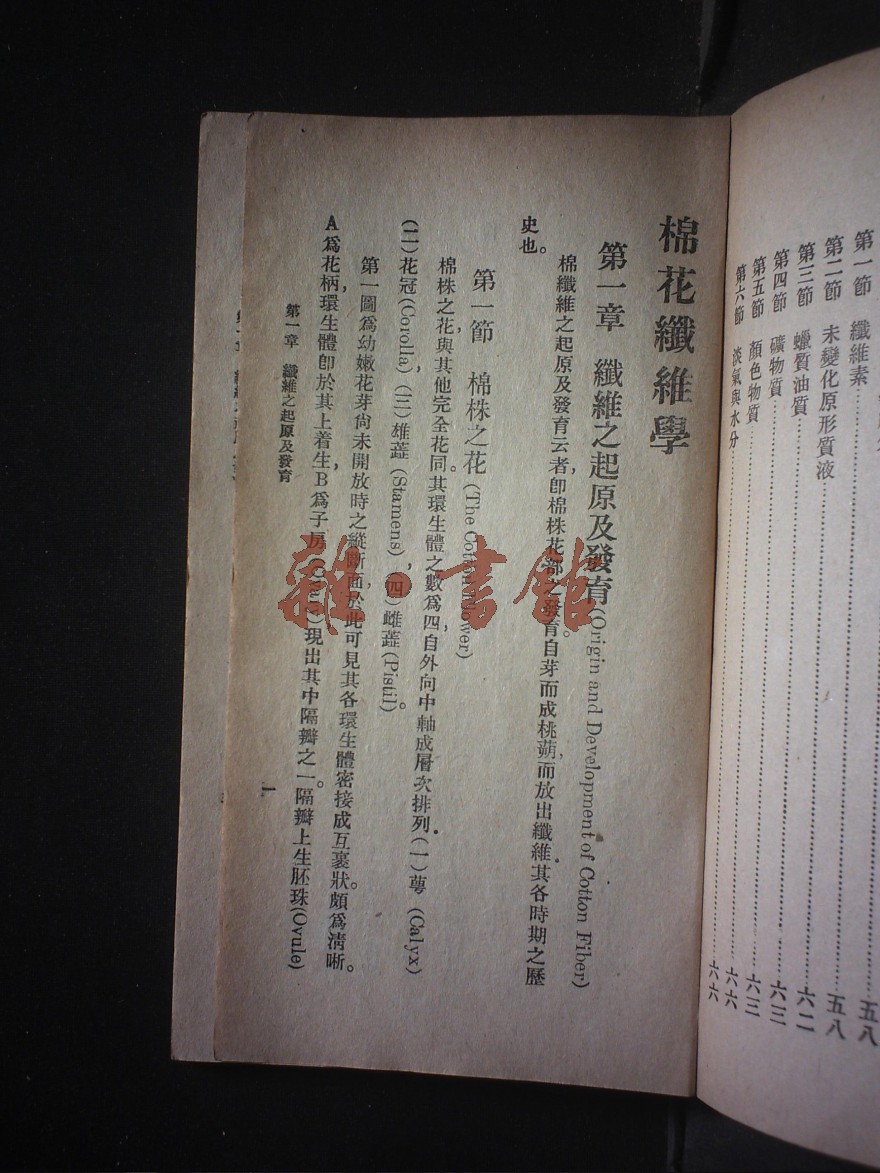 第一節 纖維素……五八
第二節 未變化原形質液……五八
第三節 蠟質油質……六二
第四節 礦物質……六三
第五節 顏色物質……六三
第六節 淡氣與水分……六六
六六
棉花纖維學
第一章 纖維之起原及發育(Origin and Development of Cotton Fiber)
棉纖維之起原及發育云者,卽棉株花部之發育自芽而成桃蒴,而放出纖維其各時期之歷
史也。
第一節 棉株之花(The Cotton Flower)
棉株之花,與其他完全花同。其環生體之數爲四,自外向中軸成層次排列.(一)萼(Calyx)
(二)花冠(Corolla),(三)雄蕋(Stamens),(四)雌蕋(Pistil)。
第一圖爲幼嫩花芽尙未開放時之縱斷面,於此可見其各環生體密接成互裹狀。頗爲清晰。
A爲花柄,環生體卽於其上着生,B爲子房(Ovary)現出其中隔瓣之一。隔瓣上生胚珠(Ovule)
第一章 纖維之起原及發育
一
雜·書館